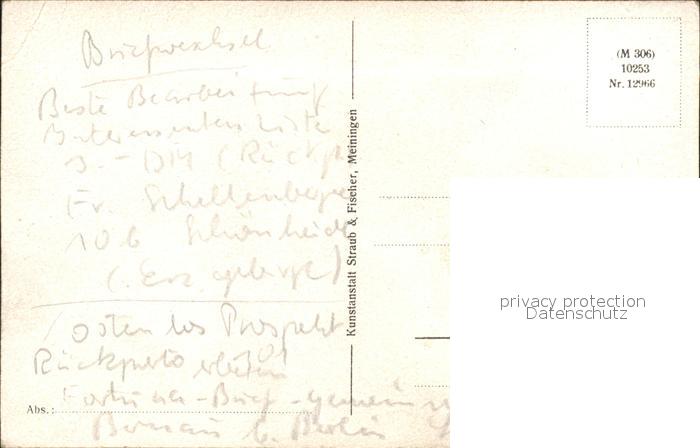 Briefwechsel
Beste Bearbeitung
Interessenten Liste
3.- DM (Rückp
Fr. Schellenberger
10b Schönheide
(Erzgebirge)
Prospekt
Rückporto erbeten
Bernau b. Berlin
Abs.:
Kunstanstalt Straub & Fischer, Meiningen
(M 306)
10253
Nr. 12966
privacy protection
Datenschutz